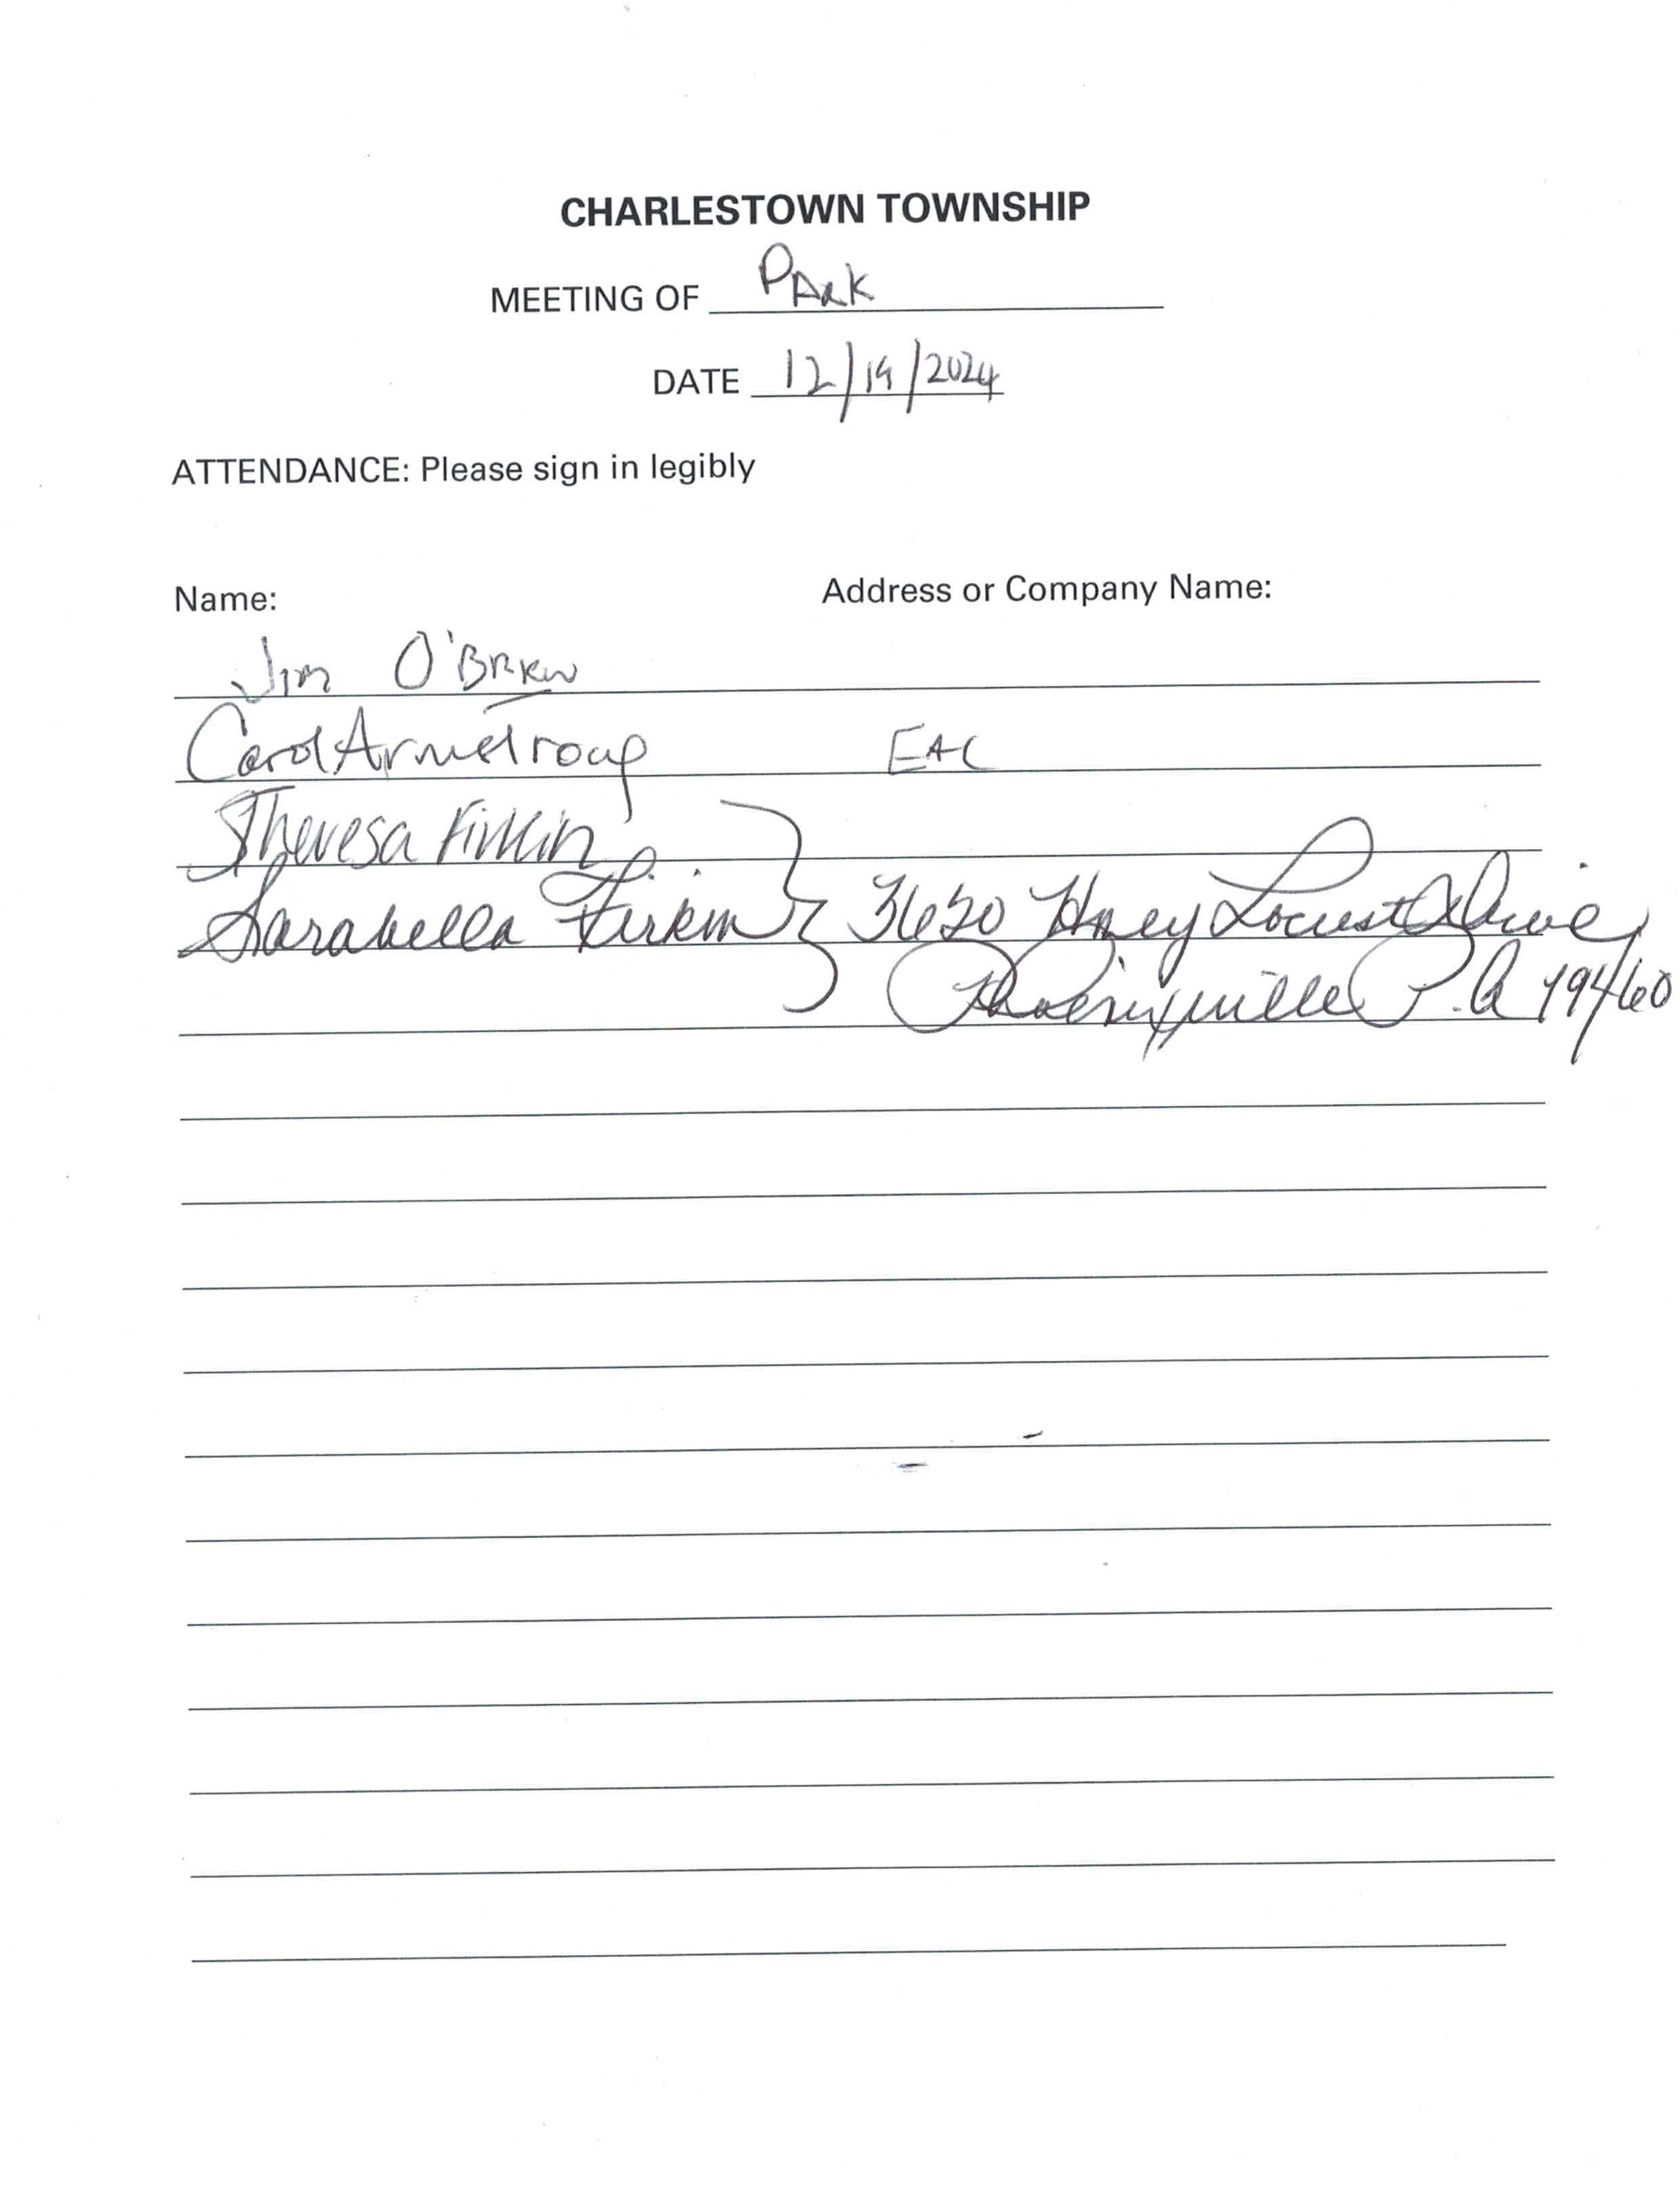 CHARLESTOWN TOWNSHIP
MEETING OF PARK
DATE 12/19/2024
ATTENDANCE: Please sign in legibly
Name: Address or Company Name:
Jim O'Brien
Carol Armstrong EAC
Theresa Firkin
Sarabella Firkin 3620 Honey Locust Drive
Phoenixville P.A 19460